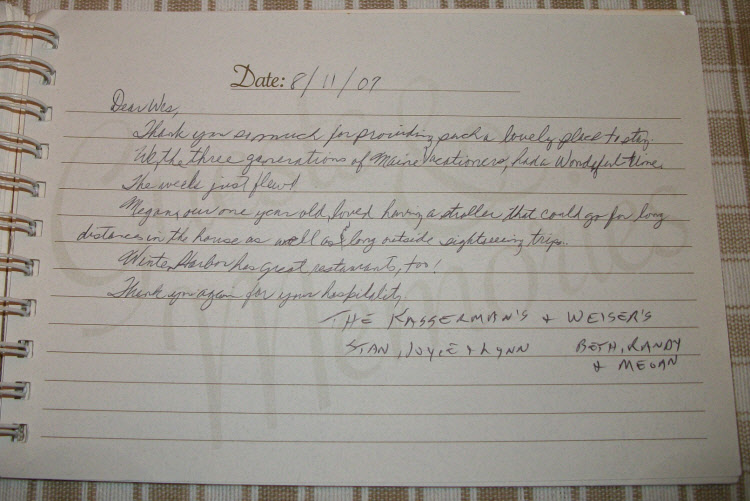 Date: 8/11/07
Dear Wes,
Thank you so much for providing such a lovely place to stay.
We, the three generations of Maine vacationers, had a Wonderful time.
The weeks just flew!
Megan, our one year old, loved having a stroller that could go for long
distances in the house as well as long outside sightseeing trips.
Winter Harbor has great restaurants, too!
Thank you again for your hospitality,
THE KASSERMAN'S & WEISER'S
STAN, JOYCE & LYNN BETH, RANDY
& MEGAN
Guest Memories